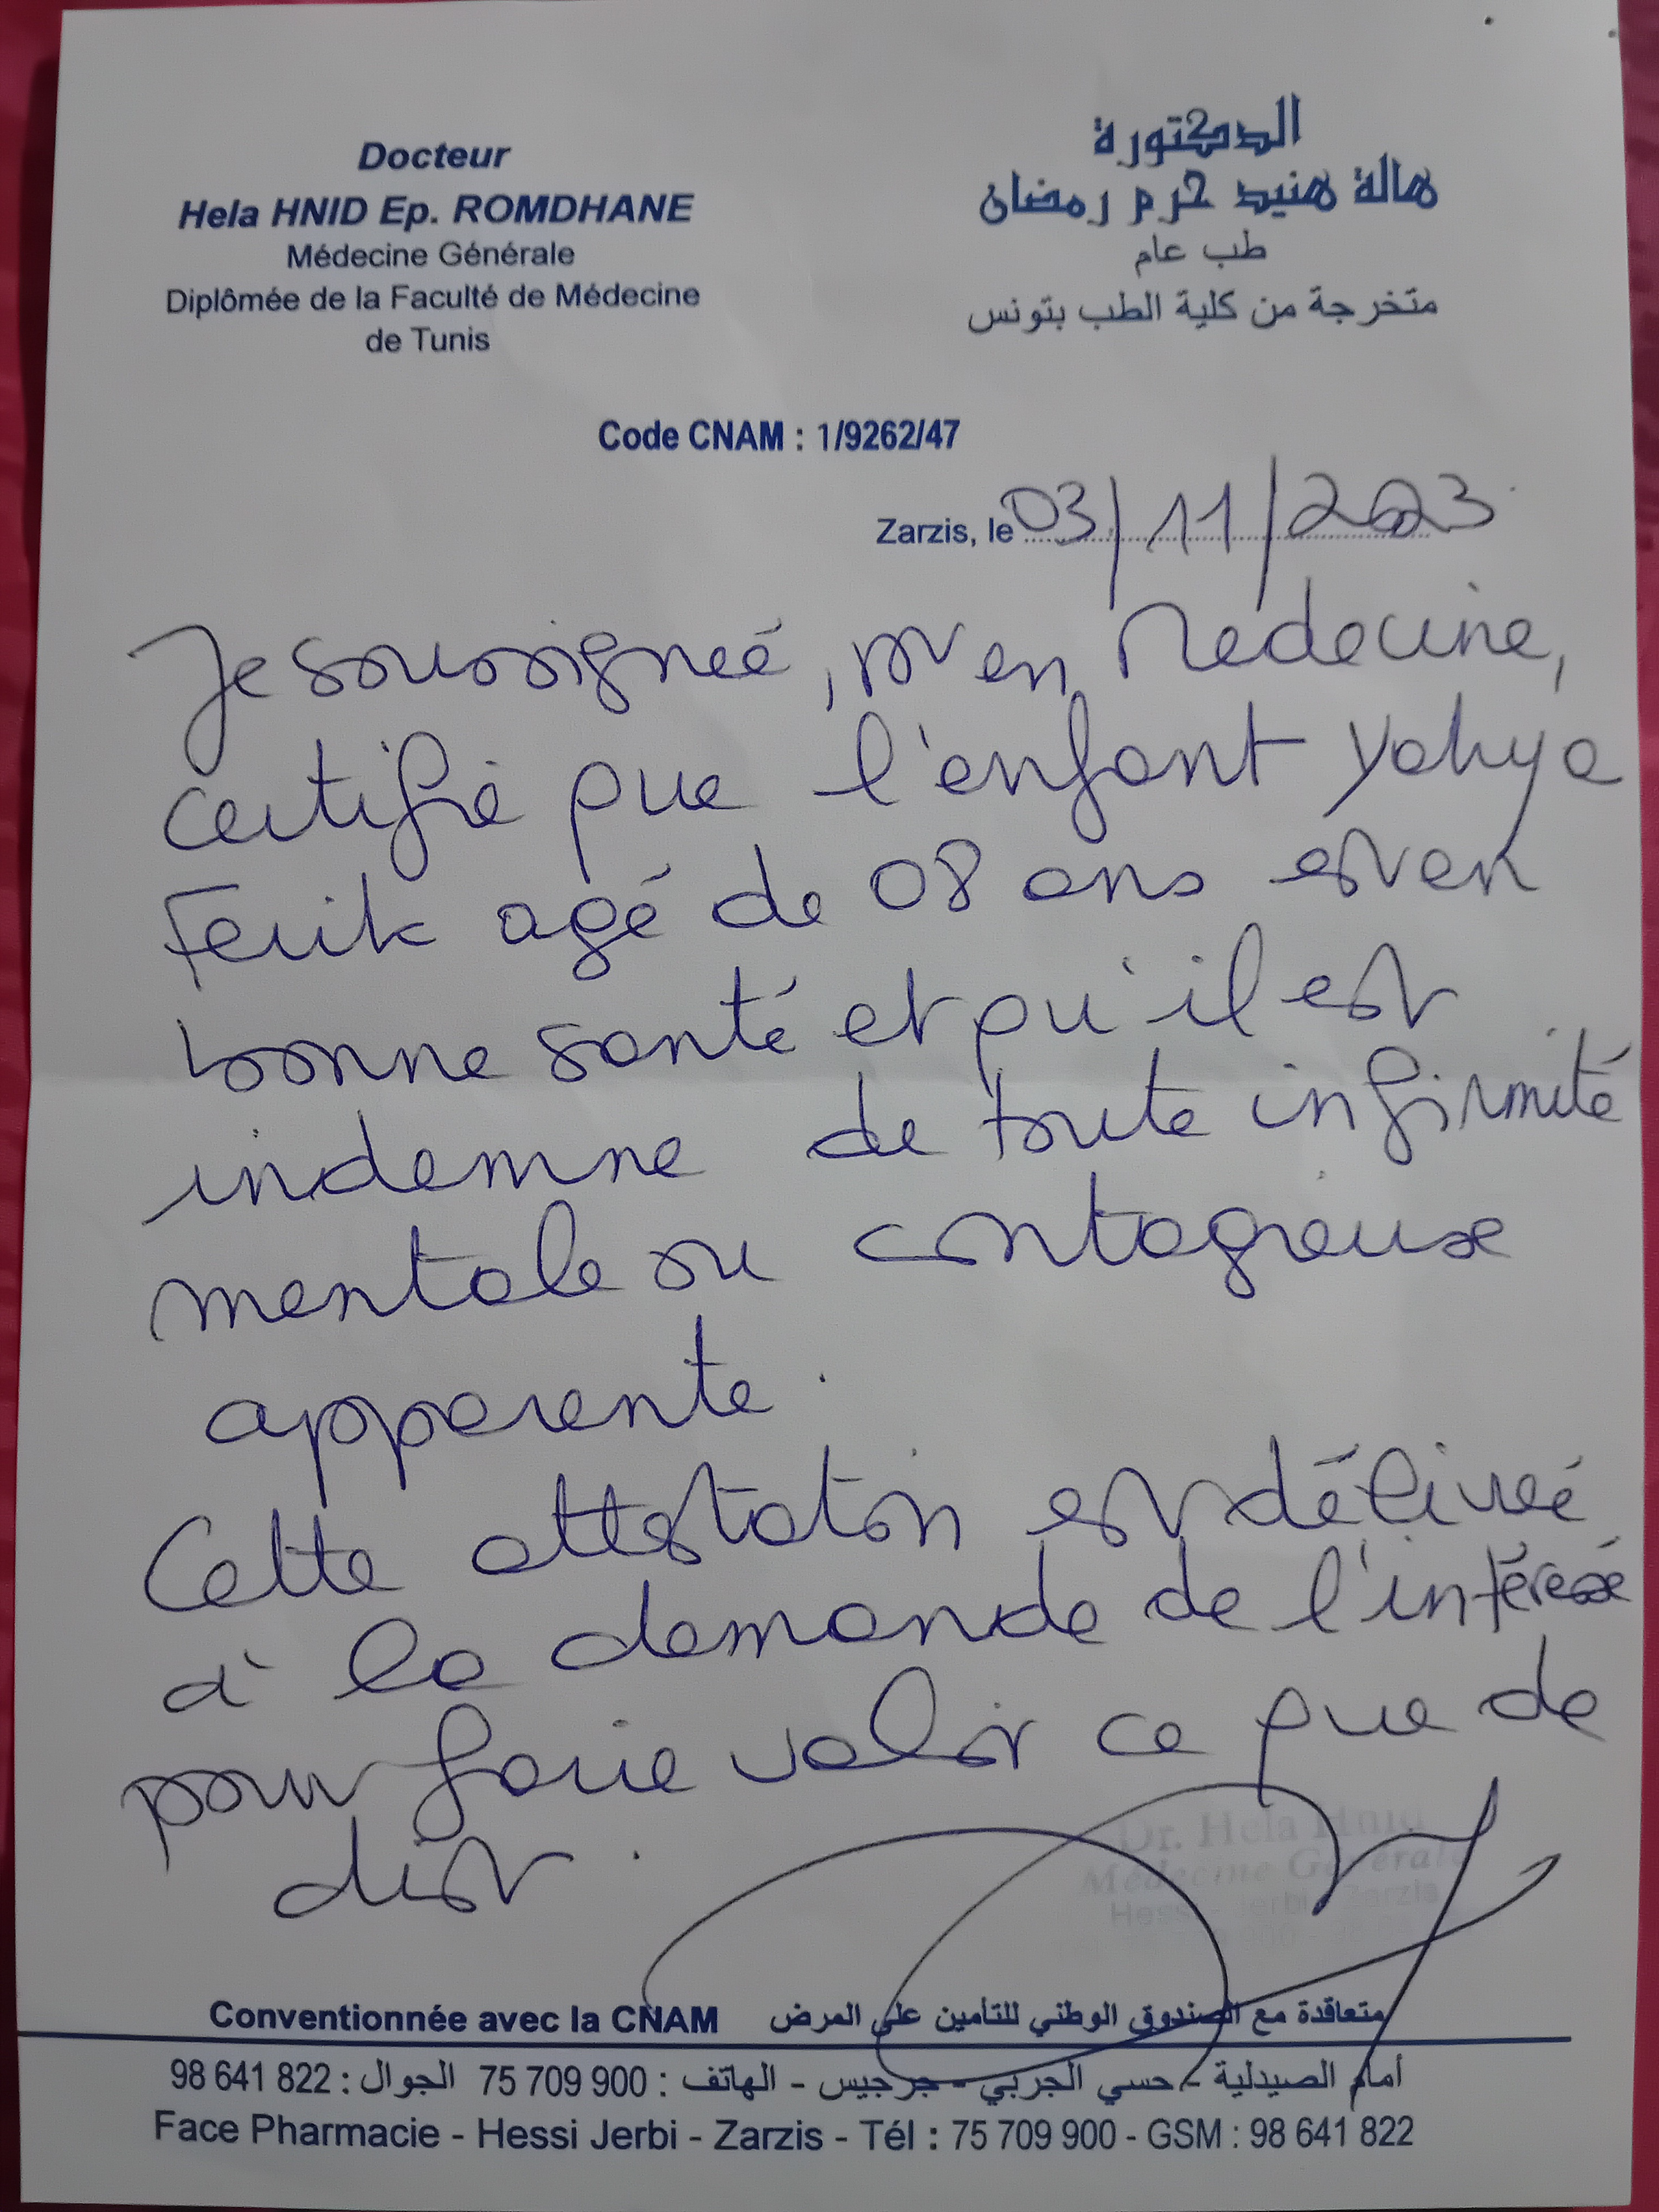 Docteur
Hela HNID Ep. ROMDHANE
Médecine Générale
Diplômée de la Faculté de Médecine
de Tunis
الدكتورة
هالة هنيد حرم رمضان
طب عام
متخرجة من كلية الطب بتونس
Code CNAM : 1/9262/47
Zarzis, le 03/11/2023
Je soussigneé, Dr en Médecine,
certifie que l'enfant Yahya
Ferik agé de 08 ans est en
bonne santé et qu'il est
indemne de toute infirmité
mentale ou contagieuse
apparente.
Cette attestation est délivreé
à la demande de l'intéressé
pour faire valoir ce que de
dist.
Dr. Hela Hnid
Médecine Générale
Hessi Jerbi - Zarzis
Conventionnée avec la CNAM متعاقدة مع الصندوق الوطني للتأمين على المرض
أمام الصيدلية - حسي الجربي - جرجيس - الهاتف : 75 709 900 الجوال : 98 641 822
Face Pharmacie - Hessi Jerbi - Zarzis - Tél : 75 709 900 - GSM : 98 641 822